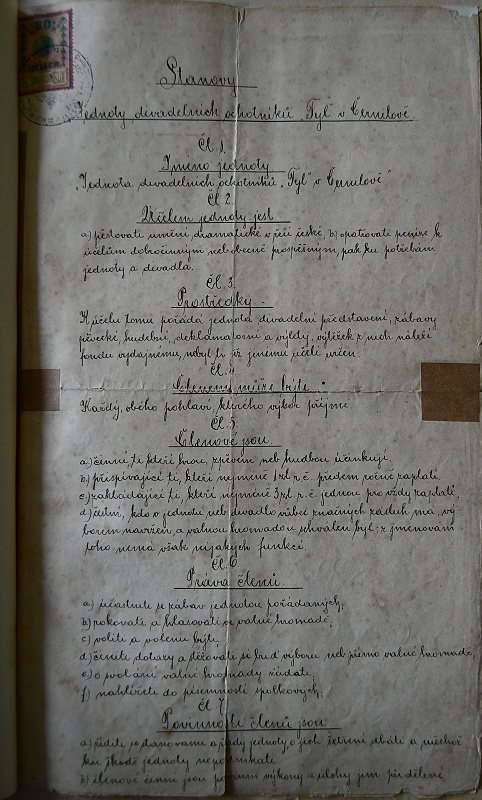 Stanovy
Jednoty divadelních ochotníků „Tyl" v Černilově
Čl. 1.
Jmeno jednoty
„Jednota divadelních ochotníků „Tyl" v Černilově"
Čl. 2.
Účelem jednoty jest
a) pěstovati umění dramatické v řeči české, b) opatřovati peníze k
účelům dobročinným neb obecně prospěšným, pak ku potřebám
jednoty a divadla.
Čl. 3.
Prostředky.
K účelu tomu pořádá jednota divadelní představení, zábavy
pěvecké, hudební, deklamatorní a výlety, výtěžek z nich náleží
fondu výdajnému, nebyl li již jinému účeli určen.
Čl. 4.
Členem může býti
Každý, obého pohlaví, kterého výbor přijme.
Čl. 5.
Členové jsou.
a) činní, ti kteří hrou, zpěvem neb hudbou účinkují.
b) přispívající ti, kteří nejméně 1 zl. r. č. předem ročně zaplatí,
c) zakládající ti, kteří nejméně 3 zl. r. č. jednou pro vždy zaplatí,
d) čestní, kdo o jednotu neb divadlo vůbec značných zásluh má, vý-
borem navržen a valnou hromadou schválen byl; z jmenování
toho nemá však nijakých funkcí.
Čl. 6
Práva členů.
a) účastniti se zábav jednotou pořádaných,
b) rokovati a hlasovati ve valné hromadě,
c) voliti a volenu býti,
d) činiti dotazy a stěžovati si buď výboru neb přímo valné hromadě,
e) o svolání valné hromady žádati,
f) nahlížeti do písemností spolkových.
Čl. 7
Povinnosti členů jsou
a) říditi se stanovami a řády jednoty o jich šetření dbáti a ničehož
ku škodě jednoty nepodnikati
b) členové činní jsou povinni výkony a úlohy jim přidělené